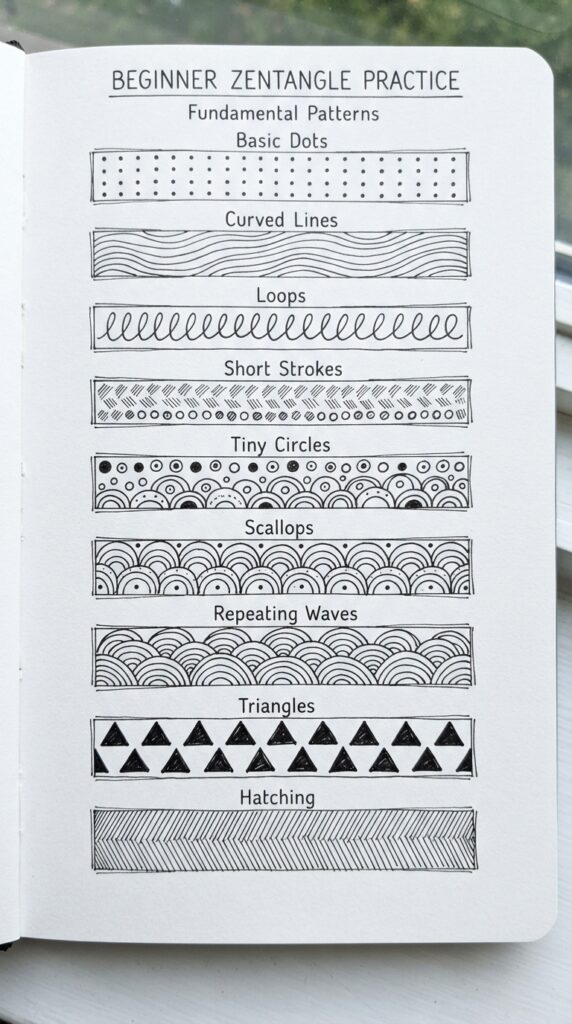 BEGINNER ZENTANGLE PRACTICE
Fundamental Patterns
Basic Dots
Curved Lines
Loops
Short Strokes
Tiny Circles
Scallops
Repeating Waves
Triangles
Hatching